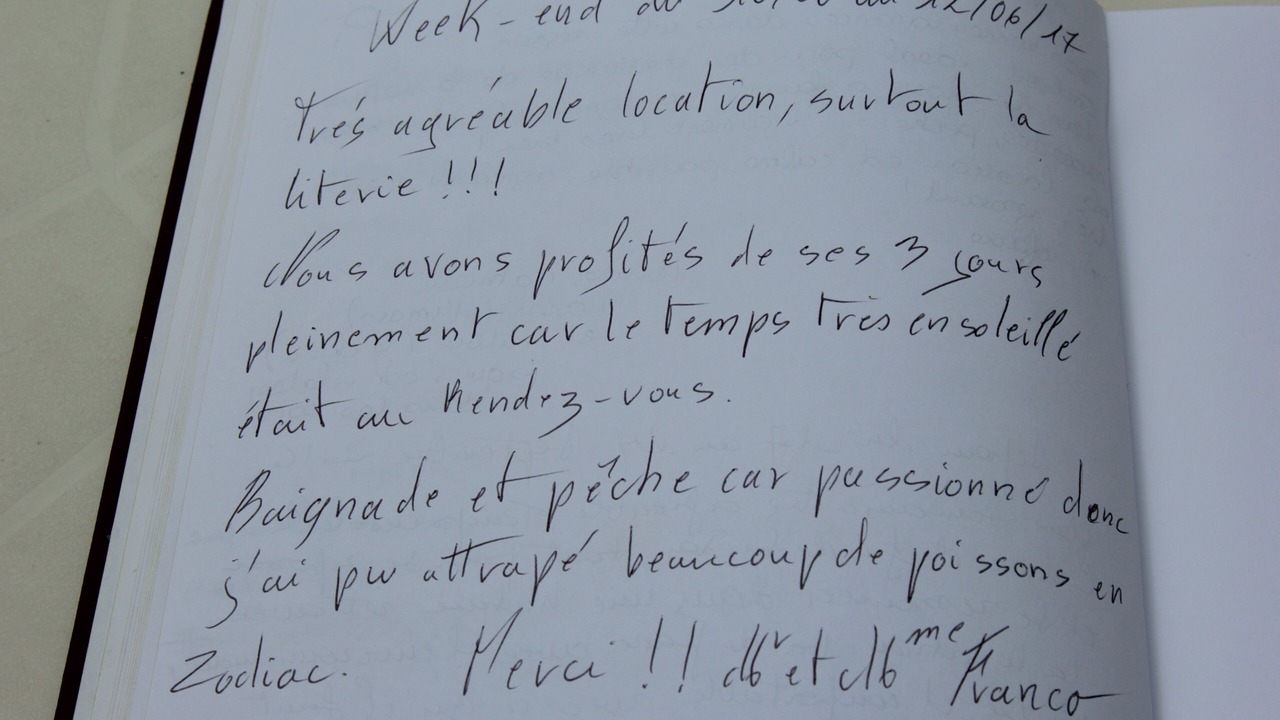 Week-end du au 12/06/17
Trés agréable location, surtout la
literie !!!
Nous avons profités de ses 3 jours
pleinement car le temps très ensoleillé
était au Rendez-vous.
Baignade et pêche car passionné donc
j'ai pu attrapé beaucoup de poissons en
Zodiac. Merci !! Mr et Mme Franco